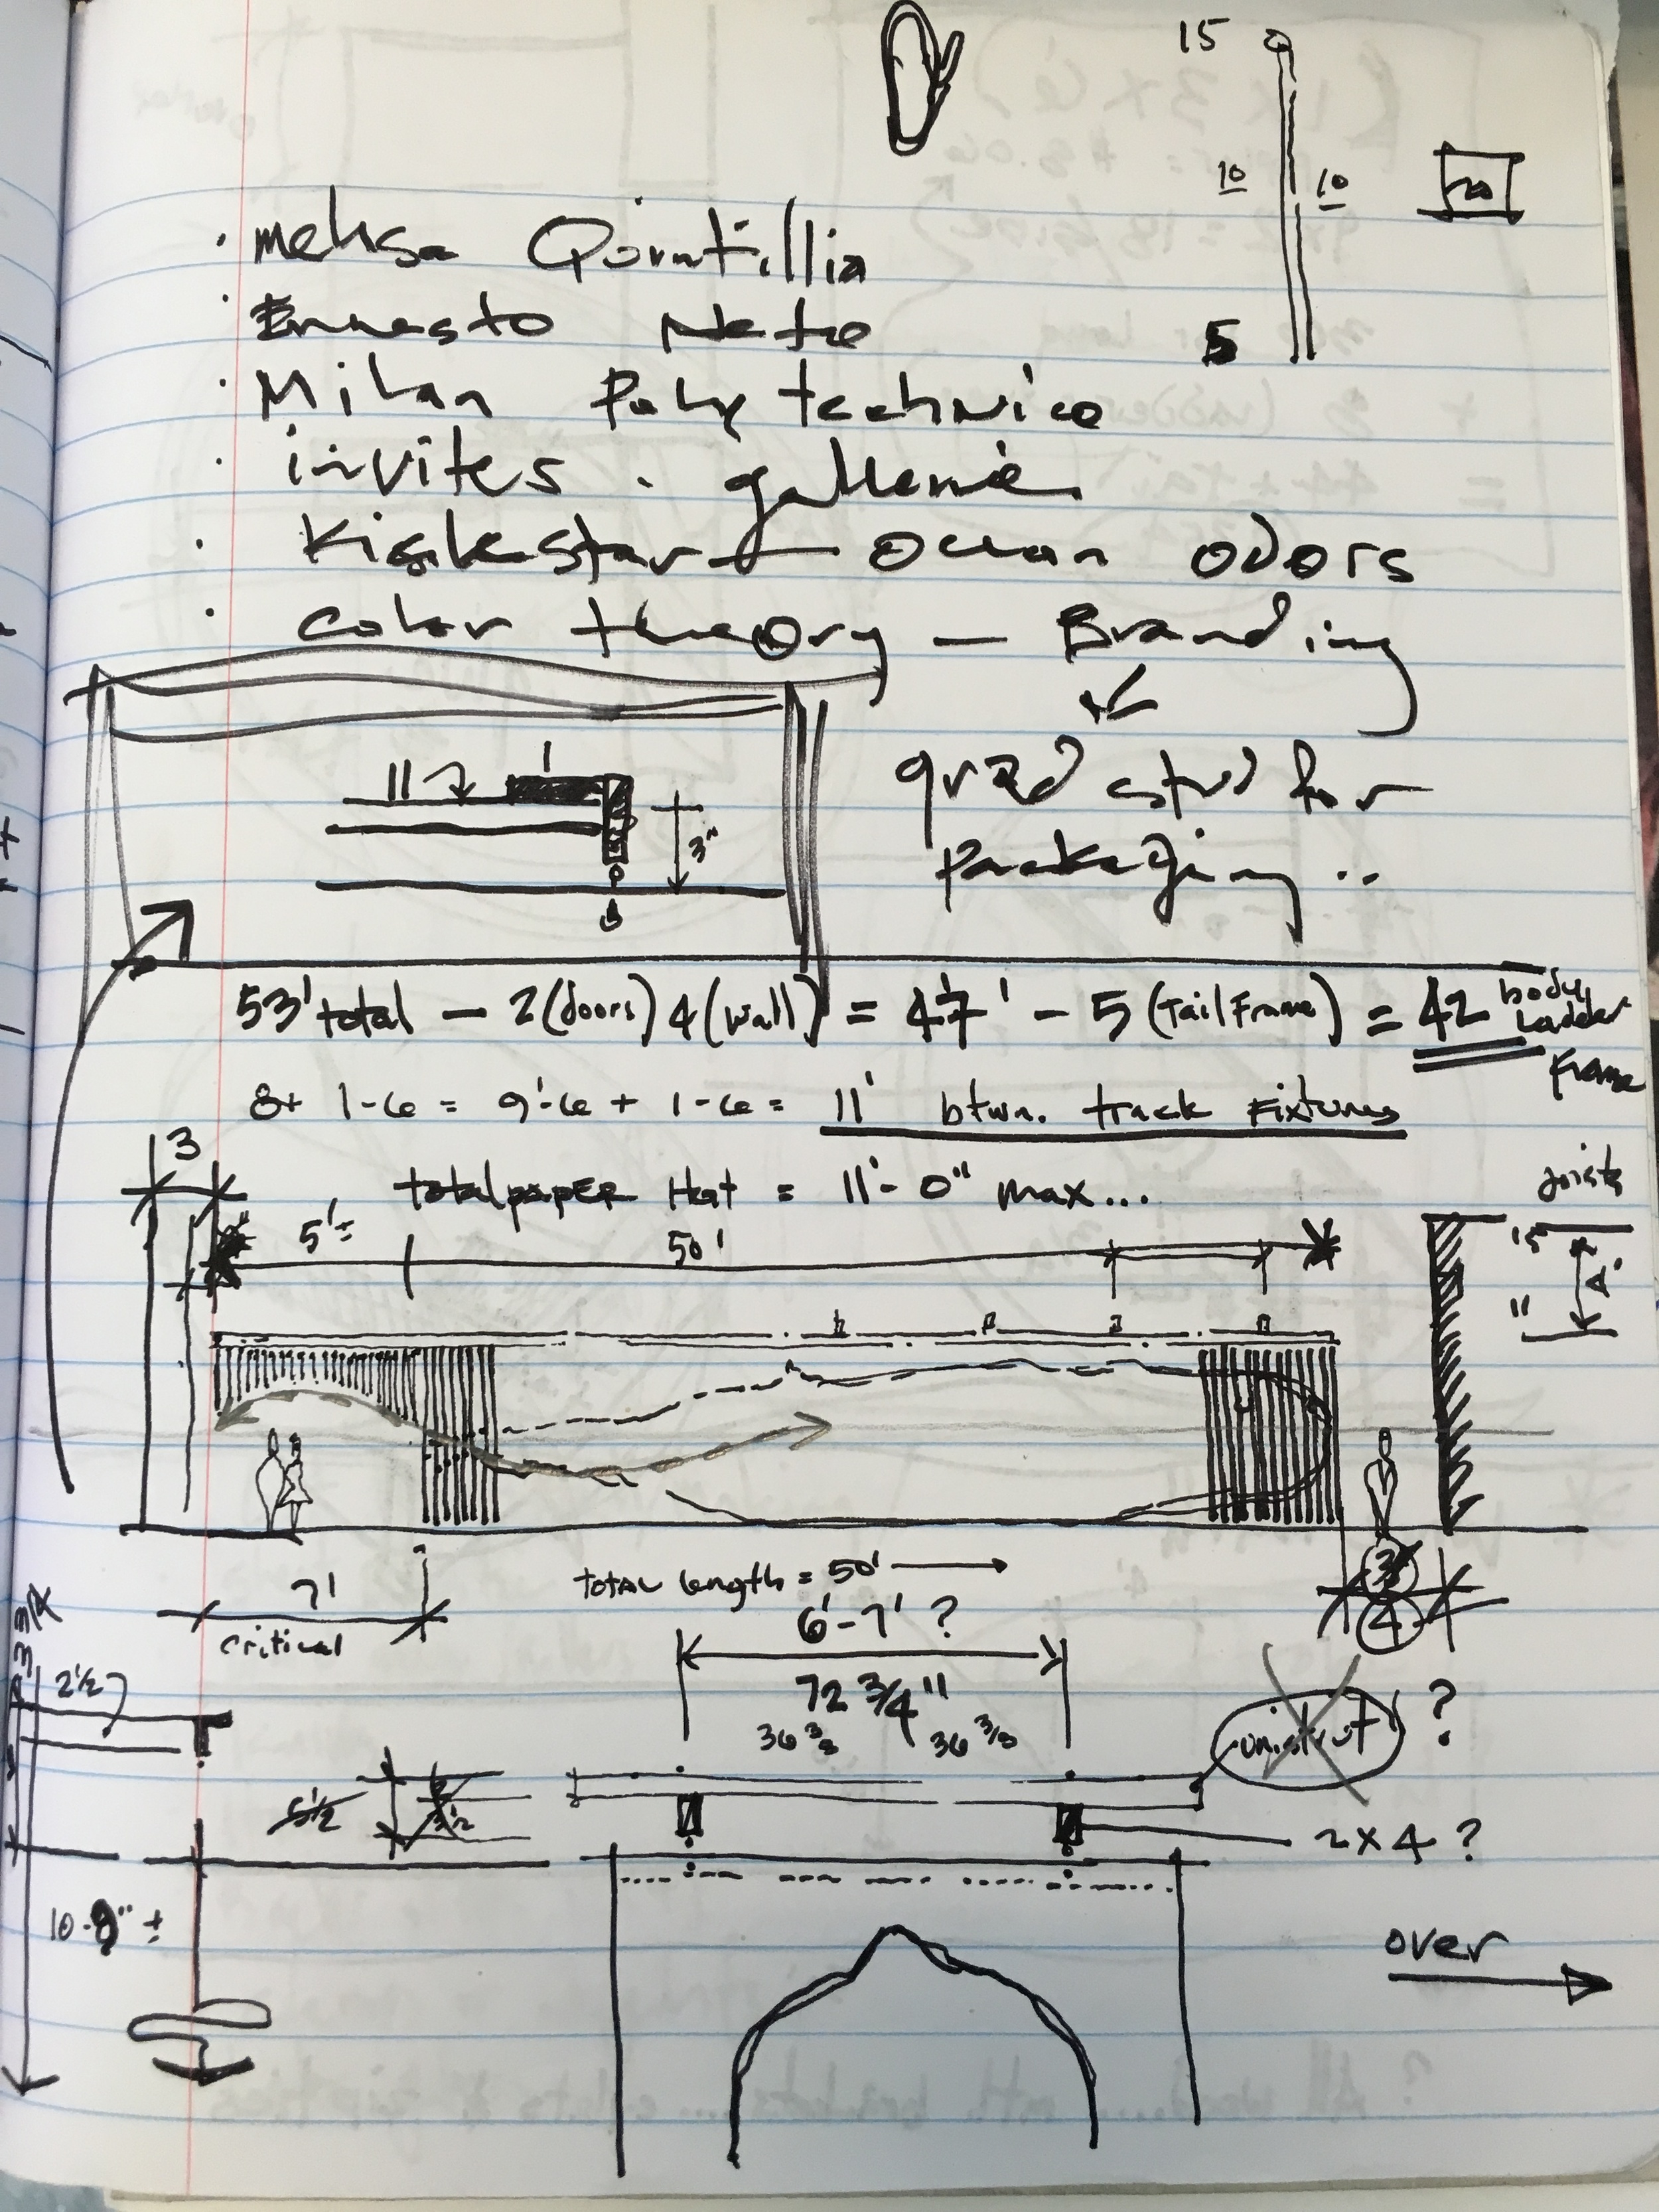 15
10 10 20
5
· melisa Quintillia
· Ernesto Neto
· Milan Polytechnico
· invites · gallerie
· Kickstart — ocean odors
· color theory — Branding
grad stud for
packaging ..
11 1
3"
53' total — 2 (doors) 4 (wall) = 47' - 5 (Tail Frame) = 42 body Ladder Frame
8+ 1-6 = 9'-6 + 1-6 = 11' btwn. track Fixtures
3
total paper Hgt = 11'-0" max...
Joists
5'± 50'
15 4'
11
7'
critical
total length = 50'
3
4
6'-7' ?
72 3/4"
36 3/8 36 3/8
2 1/2
unistrut ?
5 1/2 3 1/2
2 x 4 ?
10-9" ±
over